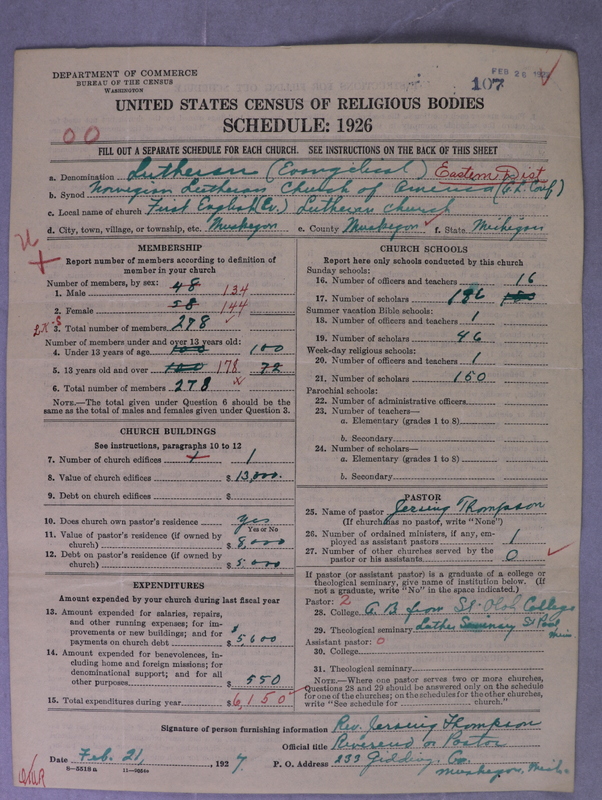 DEPARTMENT OF COMMERCE
BUREAU OF THE CENSUS
WASHINGTON
FEB 26 192
107
UNITED STATES CENSUS OF RELIGIOUS BODIES
SCHEDULE: 1926
00
FILL OUT A SEPARATE SCHEDULE FOR EACH CHURCH. SEE INSTRUCTIONS ON THE BACK OF THIS SHEET
a. Denomination Lutheran (Evangelical) Eastern Dist
b. Synod Norwegian Lutheran Church of America
c. Local name of church First English (Ev.) Lutheran Church
d. City, town, village, or township, etc. Muskegon e. County Muskegon f. State Michigan
MEMBERSHIP
Report number of members according to definition of member in your church
Number of members, by sex:
1. Male 48 134
2. Female 58 144
3. Total number of members 278
Number of members under and over 13 years old:
4. Under 13 years of age 100 100
5. 13 years old and over 100 178 72
6. Total number of members 278
NOTE.—The total given under Question 6 should be the same as the total of males and females given under Question 3.
CHURCH BUILDINGS
See instructions, paragraphs 10 to 12
7. Number of church edifices 1
8. Value of church edifices $13,000.
9. Debt on church edifices $
10. Does church own pastor's residence yes
Yes or No
11. Value of pastor's residence (if owned by church) $8,000
12. Debt on pastor's residence (if owned by church) $5,000
EXPENDITURES
Amount expended by your church during last fiscal year
13. Amount expended for salaries, repairs, and other running expenses; for improvements or new buildings; and for payments on church debt $5,600
14. Amount expended for benevolences, including home and foreign missions; for denominational support; and for all other purposes $550
15. Total expenditures during year $6,150
CHURCH SCHOOLS
Report here only schools conducted by this church
Sunday schools:
16. Number of officers and teachers 16
17. Number of scholars 196
Summer vacation Bible schools:
18. Number of officers and teachers 1
19. Number of scholars 46
Week-day religious schools:
20. Number of officers and teachers 1
21. Number of scholars 150
Parochial schools:
22. Number of administrative officers
23. Number of teachers—
a. Elementary (grades 1 to 8)
b. Secondary
24. Number of scholars—
a. Elementary (grades 1 to 8)
b. Secondary
PASTOR
25. Name of pastor Jersing Thompson
(If church has no pastor, write "None")
26. Number of ordained ministers, if any, employed as assistant pastors 1
27. Number of other churches served by the pastor or his assistants 0
If pastor (or assistant pastor) is a graduate of a college or theological seminary, give name of institution below. (If not a graduate, write "No" in the space indicated.)
Pastor: 2
28. College A.B. from St. Olaf College
29. Theological seminary Luther Seminary St Paul Minn
Assistant pastor: 0
30. College
31. Theological seminary
NOTE.—Where one pastor serves two or more churches, Questions 28 and 29 should be answered only on the schedule for one of the churches; on the schedules for the other churches, write "See schedule for ______ church."
Signature of person furnishing information Rev. Jersing Thompson
Official title Reverend or Pastor
Date Feb. 21, 1927 P. O. Address 233 Giddings
Muskegon, Mich.
8—5518 a